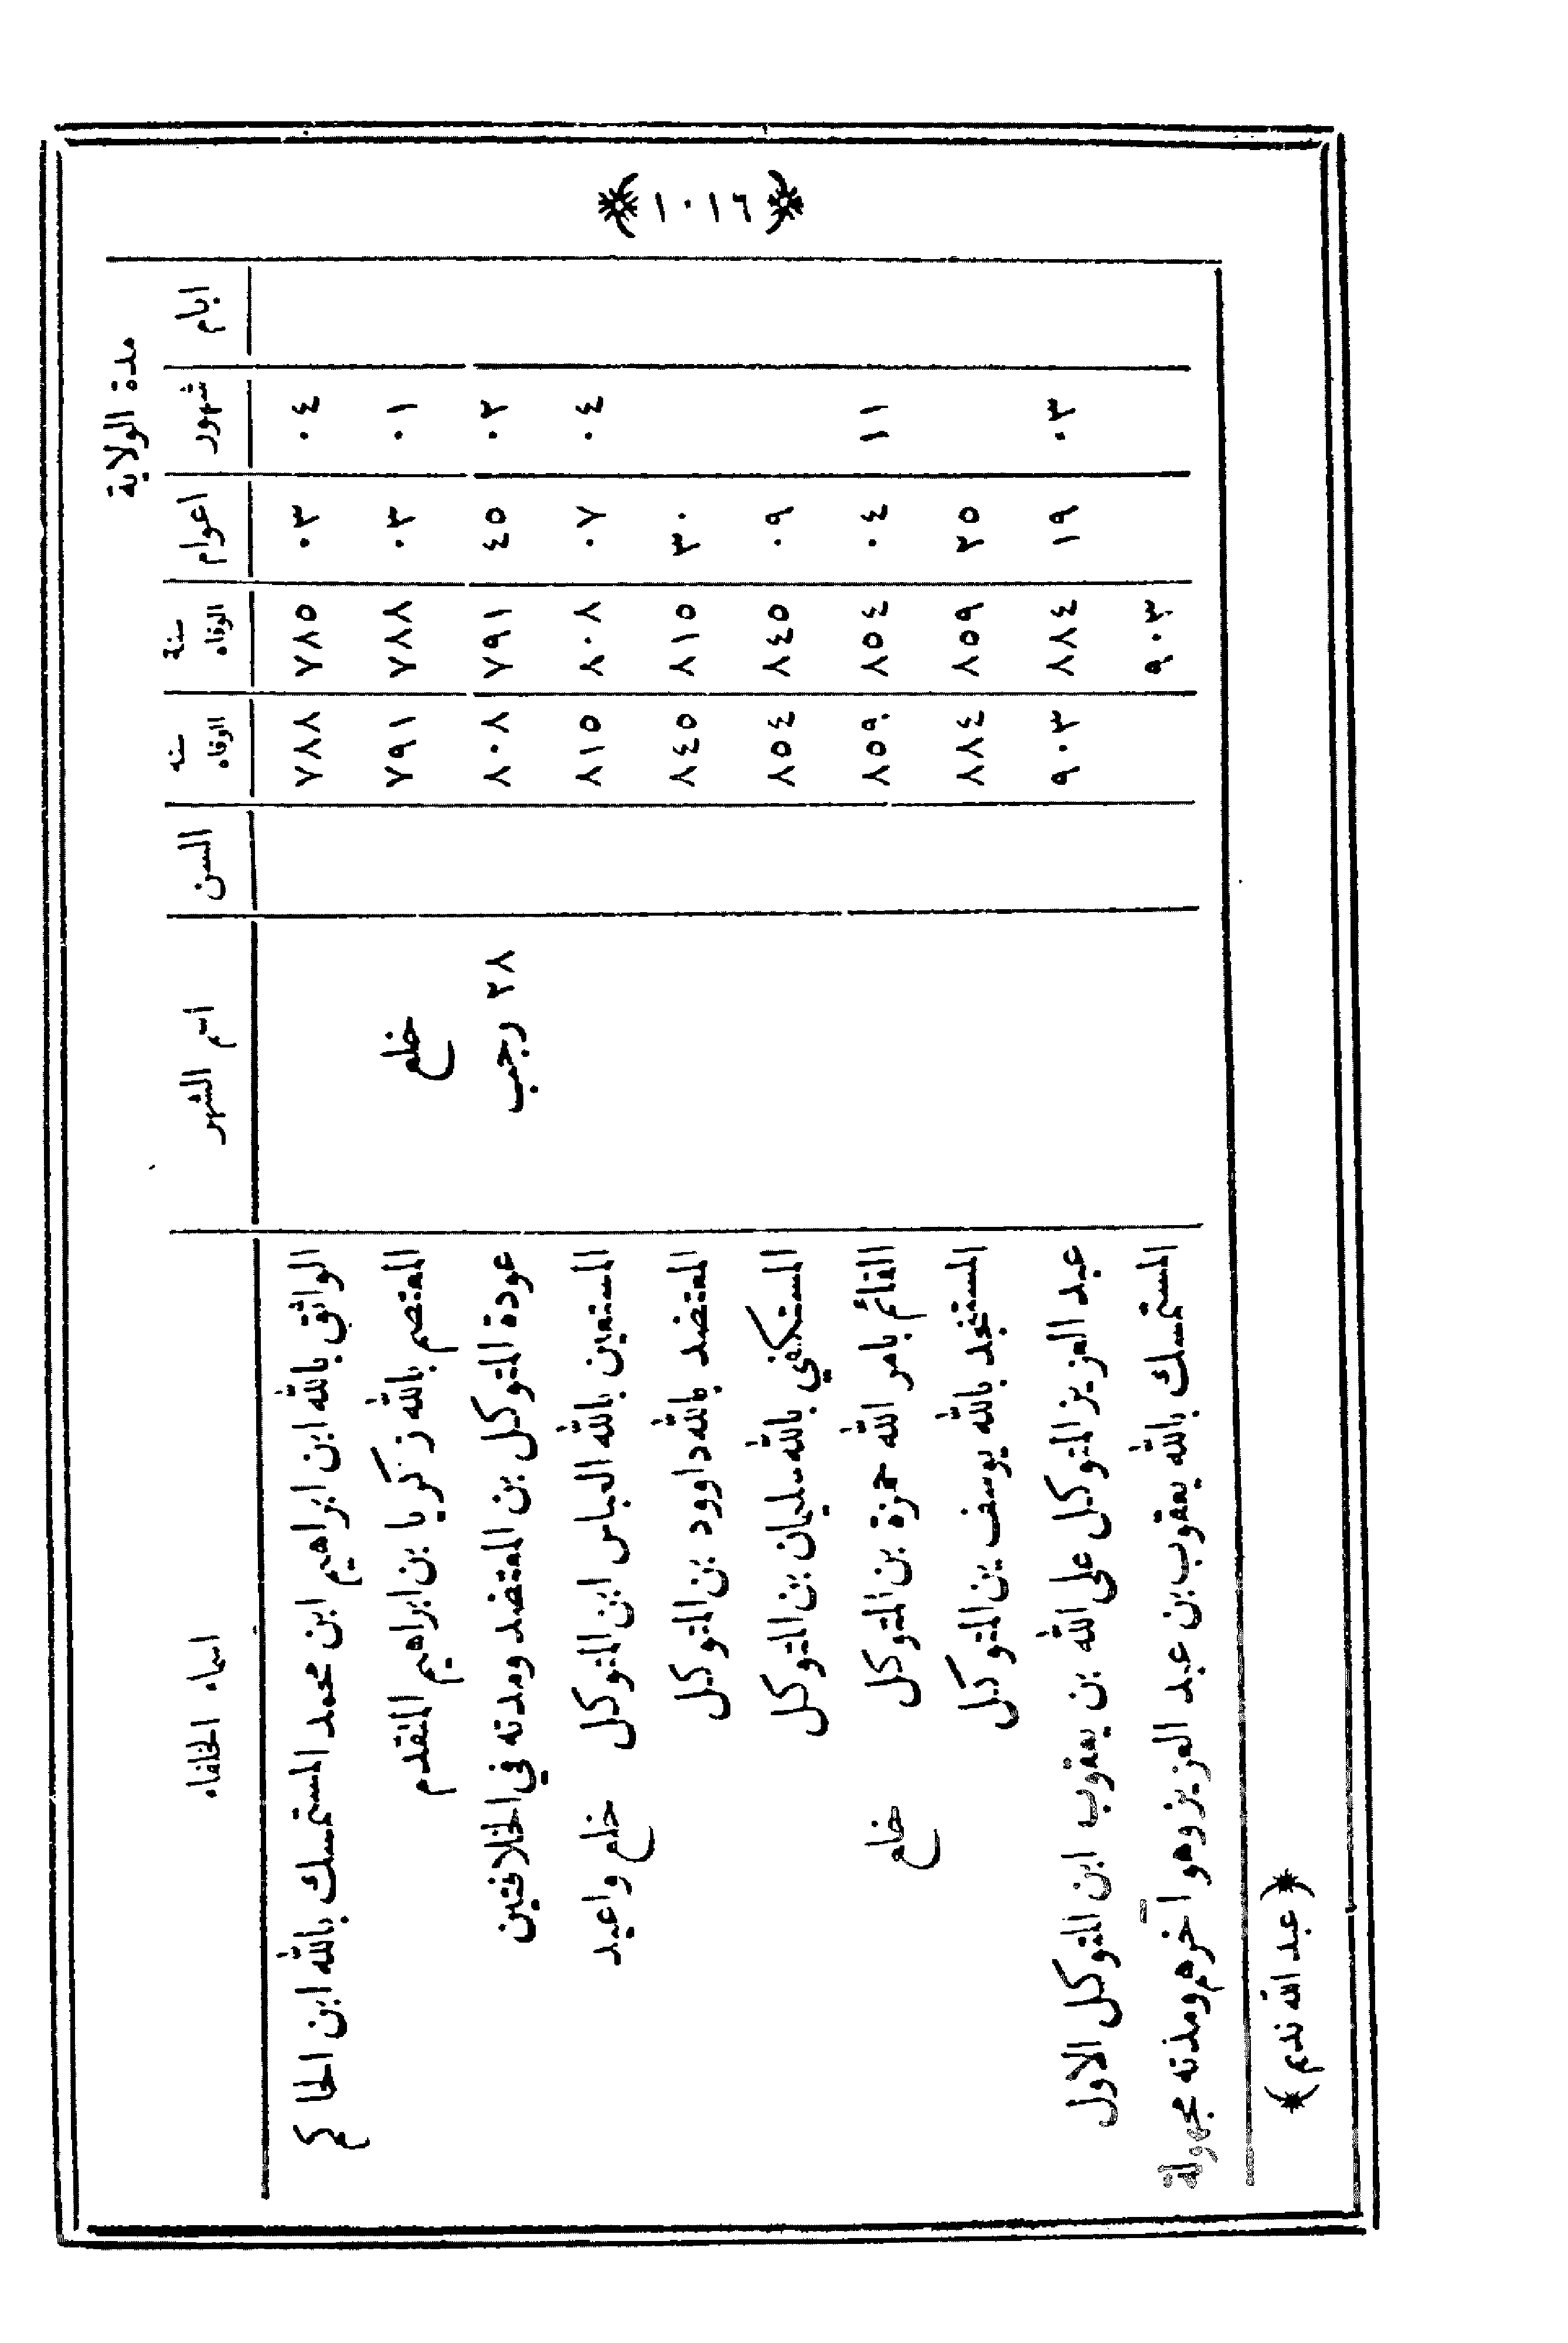 ١٠١٦
مدة الولاية
ايام شهور اعوام سنة الوفاه سنه الوفاه السن اسم الشهر اسماء الخلفاء
٠٤ ٠٣ ٧٨٥ ٧٨٨ الواثق بالله ابن ابراهيم ابن محمد المستمسك بالله ابن الحاكم
٠١ ٠٣ ٧٨٨ ٧٩١ خلع المعتصم بالله زكريا بن ابراهيم المتقدم
٠٢ ٤٥ ٧٩١ ٨٠٨ ٢٨ رجب عودة المتوكل بن المعتضد ومدته في الخلافتين
٠٤ ٠٧ ٨٠٨ ٨١٥ المستعين بالله العباس ابن المتوكل خلع واعيد
٣٠ ٨١٥ ٨٤٥ المعتضد بالله داوود بن المتوكل
٠٩ ٨٤٥ ٨٥٤ المستكفي بالله سليمان بن المتوكل
١١ ٠٤ ٨٥٤ ٨٥٩ القائم بامر الله حمزة بن المتوكل خلع
٢٥ ٨٥٩ ٨٨٤ المستنجد بالله يوسف بن المتوكل
٠٣ ١٩ ٨٨٤ ٩٠٣ عبد العزيز المتوكل على الله بن يعقوب ابن المتوكل الاول
٩٠٣ المستمسك بالله يعقوب بن عبد العزيز وهو آخرهم ومدته مجهولة
(عبد الله نديم)